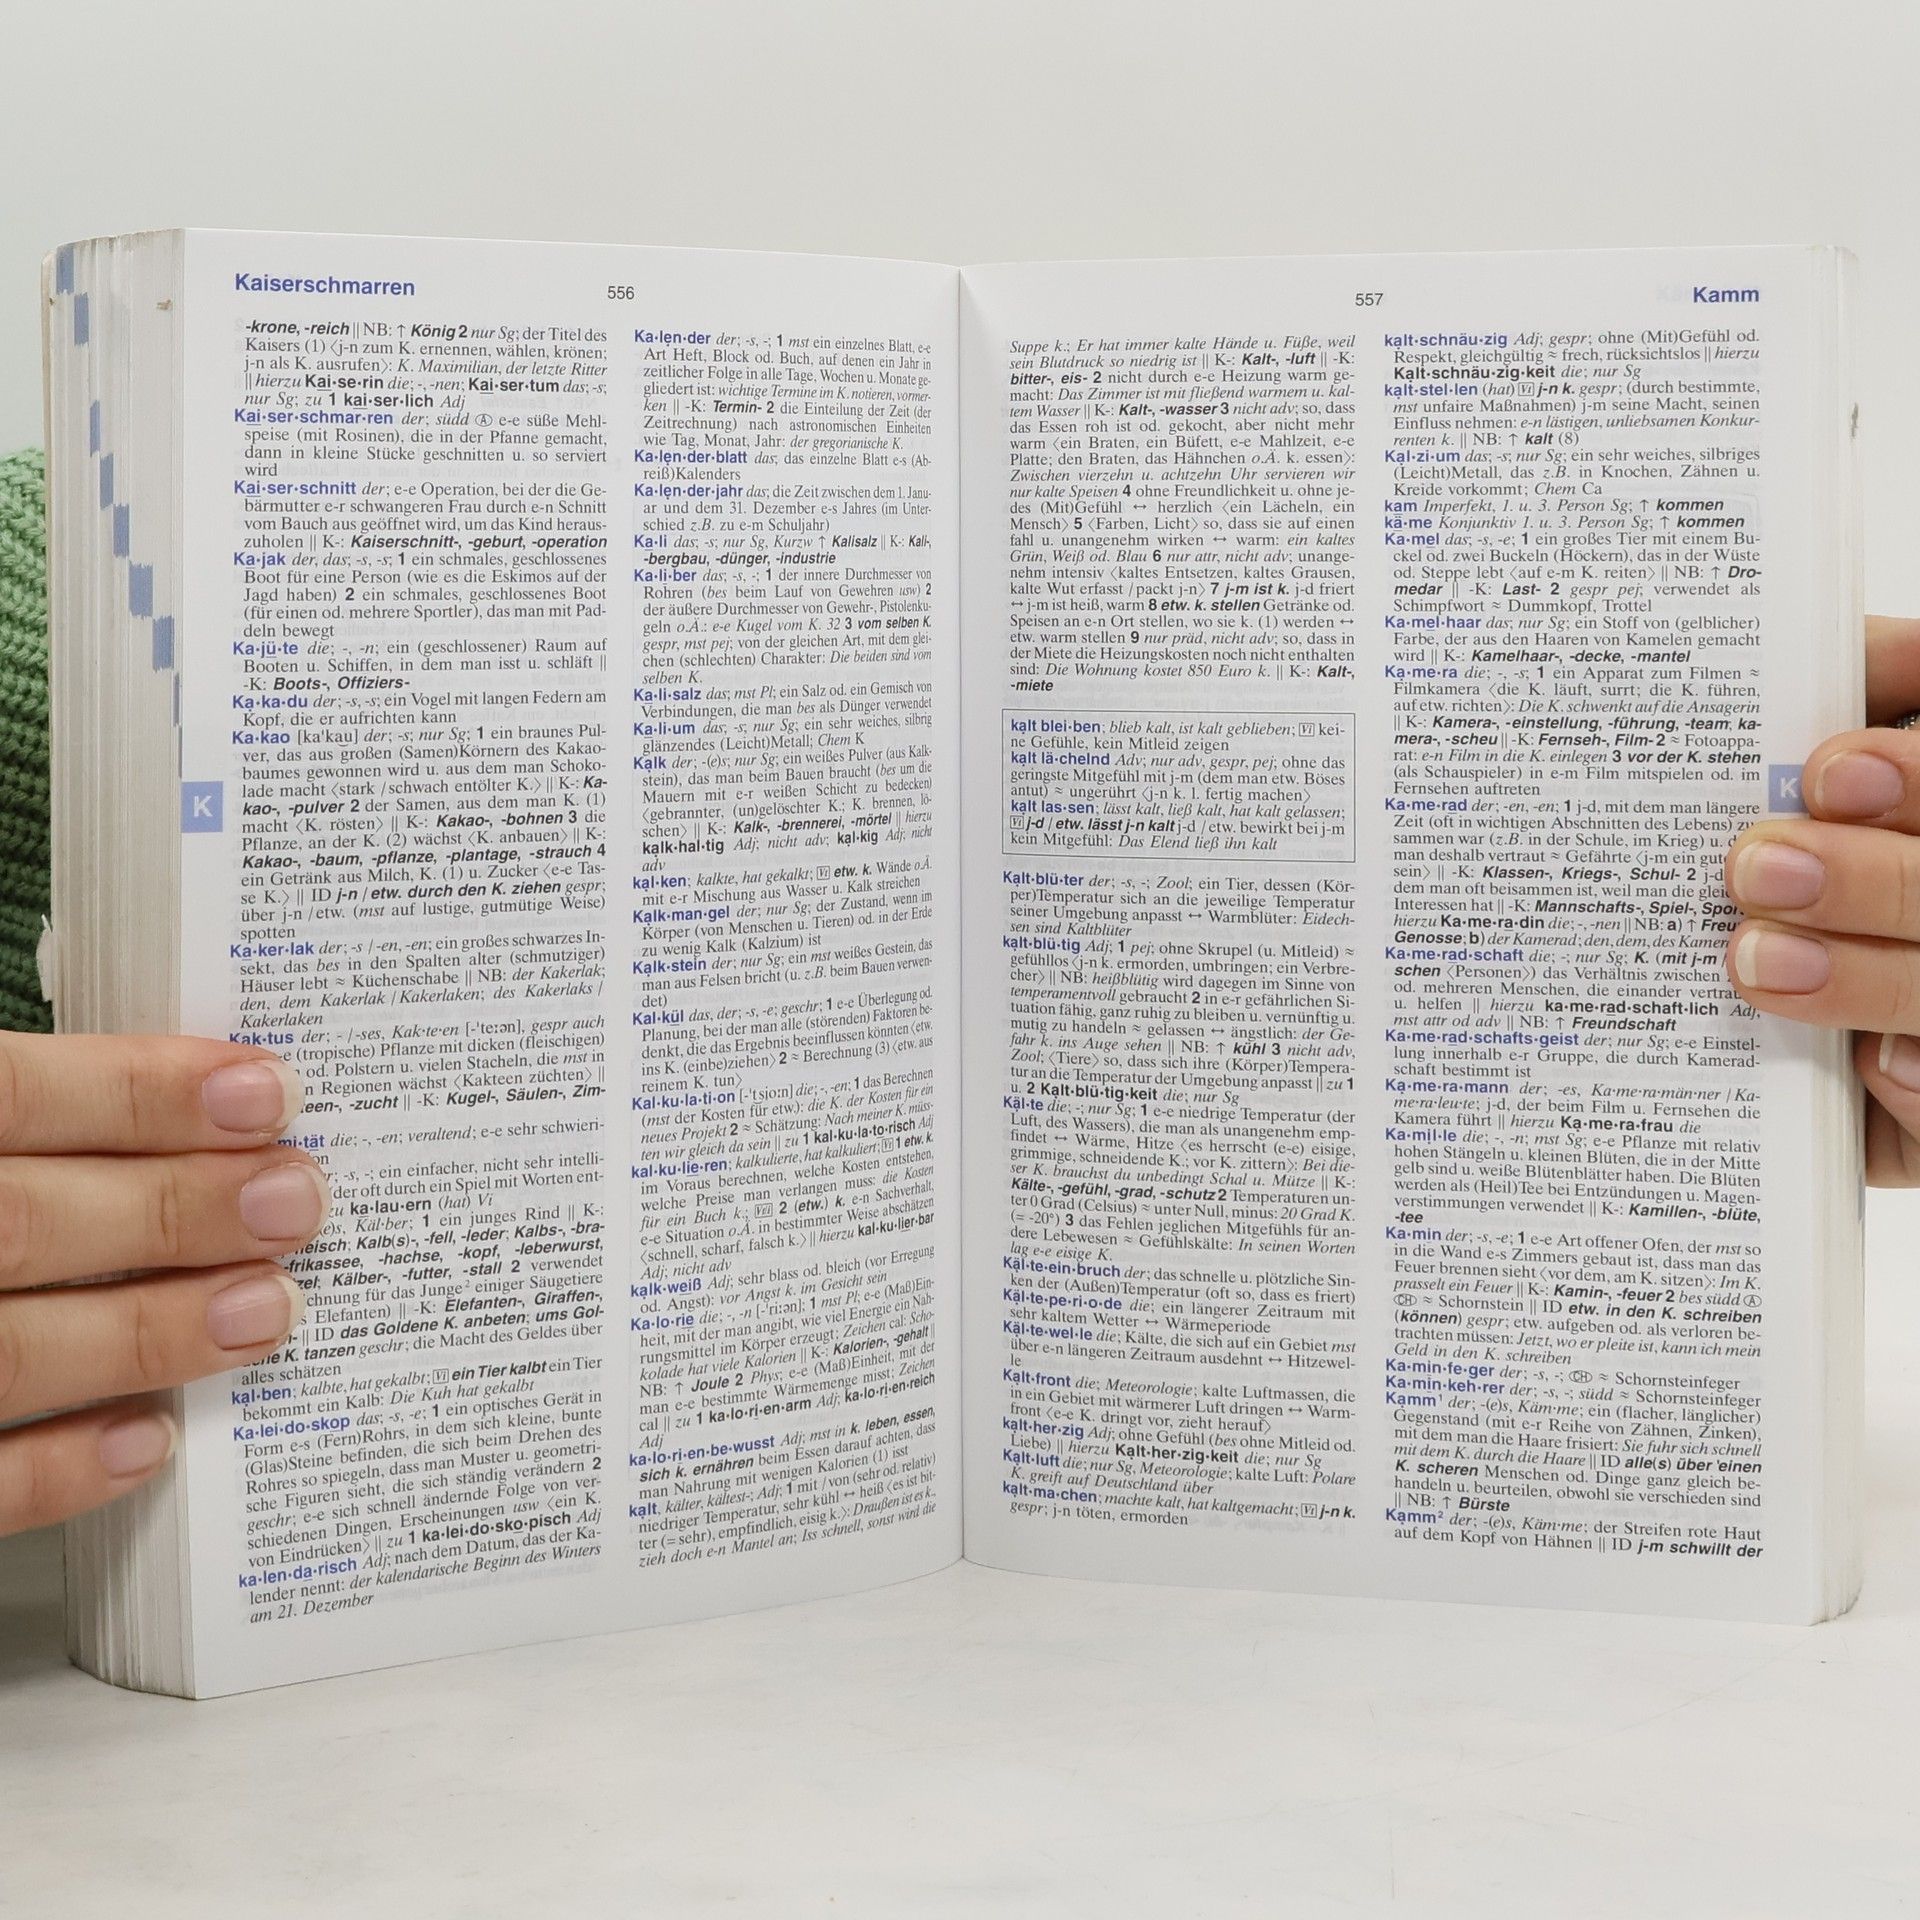 Kaiserschmarren
556
-krone, -reich || NB: ↑ König 2 nur Sg; der Titel des
Kaisers (1) ⟨j-n zum K. ernennen, wählen, krönen;
j-n als K. ausrufen⟩: K. Maximilian, der letzte Ritter
|| hierzu Kai·se·rin die; -, -nen; Kai·ser·tum das; -s;
nur Sg; zu 1 kai·ser·lich Adj
Kai·ser·schmar·ren der; südd Ⓐ e-e süße Mehl-
speise (mit Rosinen), die in der Pfanne gemacht,
dann in kleine Stücke geschnitten u. so serviert
wird
Kai·ser·schnitt der; e-e Operation, bei der die Ge-
bärmutter e-r schwangeren Frau durch e-n Schnitt
vom Bauch aus geöffnet wird, um das Kind heraus-
zuholen || K-: Kaiserschnitt-, -geburt, -operation
Ka·jak der, das; -s, -s; 1 ein schmales, geschlossenes
Boot für eine Person (wie es die Eskimos auf der
Jagd haben) 2 ein schmales, geschlossenes Boot
(für einen od. mehrere Sportler), das man mit Pad-
deln bewegt
Ka·jü·te die; -, -n; ein (geschlossener) Raum auf
Booten u. Schiffen, in dem man isst u. schläft ||
-K: Boots-, Offiziers-
Ka·ka·du der; -s, -s; ein Vogel mit langen Federn am
Kopf, die er aufrichten kann
Ka·kao [ka'kau] der; -s; nur Sg; 1 ein braunes Pul-
ver, das aus großen (Samen)Körnern des Kakao-
baumes gewonnen wird u. aus dem man Schoko-
lade macht ⟨stark / schwach entölter K.⟩ || K-: Ka-
kao-, -pulver 2 der Samen, aus dem man K. (1)
macht ⟨K. rösten⟩ || K-: Kakao-, -bohnen 3 die
Pflanze, an der K. (2) wächst ⟨K. anbauen⟩ || K-:
Kakao-, -baum, -pflanze, -plantage, -strauch 4
ein Getränk aus Milch, K. (1) u. Zucker ⟨e-e Tas-
se K.⟩ || ID j-n / etw. durch den K. ziehen gespr;
über j-n / etw. (mst auf lustige, gutmütige Weise)
spotten
Ka·ker·lak der; -s / -en, -en; ein großes schwarzes In-
sekt, das bes in den Spalten alter (schmutziger)
Häuser lebt ≈ Küchenschabe || NB: der Kakerlak;
den, dem Kakerlak / Kakerlaken; des Kakerlaks /
Kakerlaken
Kak·tus der; - / -ses, Kak·te·en [-'te:ən], gespr auch
-e (tropische) Pflanze mit dicken (fleischigen)
od. Polstern u. vielen Stacheln, die mst in
n Regionen wächst ⟨Kakteen züchten⟩ ||
teen-, -zucht || -K: Kugel-, Säulen-, Zim-
mi·tät die; -, -en; veraltend; e-e sehr schwieri-
on
r; -s, -; ein einfacher, nicht sehr intelli-
der oft durch ein Spiel mit Worten ent-
zu ka·lau·ern (hat) Vi
(e)s, Käl·ber; 1 ein junges Rind || K-:
fleisch; Kalb(s)-, -fell, -leder; Kalbs-, -bra-
-frikassee, -hachse, -kopf, -leberwurst,
zel; Kälber-, -futter, -stall 2 verwendet
chnung für das Junge² einiger Säugetiere
s Elefanten) || -K: Elefanten-, Giraffen-,
- || ID das Goldene K. anbeten; ums Gol-
K. tanzen geschr; die Macht des Geldes über
alles schätzen
kal·ben; kalbte, hat gekalbt; Vi ein Tier kalbt ein Tier
bekommt ein Kalb: Die Kuh hat gekalbt
Ka·lei·do·skop das; -s, -e; 1 ein optisches Gerät in
Form e-s (Fern)Rohrs, in dem sich kleine, bunte
(Glas)Steine befinden, die sich beim Drehen des
Rohres so spiegeln, dass man Muster u. geometri-
sche Figuren sieht, die sich ständig verändern 2
geschr; e-e sich schnell ändernde Folge von ver-
schiedenen Dingen, Erscheinungen usw ⟨ein K.
von Eindrücken⟩ || zu 1 ka·lei·do·sko·pisch Adj
ka·len·da·risch Adj; nach dem Datum, das der Ka-
lender nennt: der kalendarische Beginn des Winters
am 21. Dezember
K
Ka·len·der der; -s, -; 1 mst ein einzelnes Blatt, e-e
Art Heft, Block od. Buch, auf denen ein Jahr in
zeitlicher Folge in alle Tage, Wochen u. Monate ge-
gliedert ist: wichtige Termine im K. notieren, vormer-
ken || -K: Termin- 2 die Einteilung der Zeit (der
Zeitrechnung) nach astronomischen Einheiten
wie Tag, Monat, Jahr: der gregorianische K.
Ka·len·der·blatt das; das einzelne Blatt e-s (Ab-
reiß)Kalenders
Ka·len·der·jahr das; die Zeit zwischen dem 1. Janu-
ar und dem 31. Dezember e-s Jahres (im Unter-
schied z.B. zu e-m Schuljahr)
Ka·li das; -s; nur Sg, Kurzw ↑ Kalisalz || K-: Kali-,
-bergbau, -dünger, -industrie
Ka·li·ber das; -s, -; 1 der innere Durchmesser von
Rohren (bes beim Lauf von Gewehren usw) 2
der äußere Durchmesser von Gewehr-, Pistolenku-
geln o.Ä.: e-e Kugel vom K. 32 3 vom selben K.
gespr, mst pej; von der gleichen Art, mit dem glei-
chen (schlechten) Charakter: Die beiden sind vom
selben K.
Ka·li·salz das; mst Pl; ein Salz od. ein Gemisch von
Verbindungen, die man bes als Dünger verwendet
Ka·li·um das; -s; nur Sg; ein sehr weiches, silbrig
glänzendes (Leicht)Metall; Chem K
Kalk der; -(e)s; nur Sg; ein weißes Pulver (aus Kalk-
stein), das man beim Bauen braucht (bes um die
Mauern mit e-r weißen Schicht zu bedecken)
⟨gebrannter, (un)gelöschter K.; K. brennen, lö-
schen⟩ || K-: Kalk-, -brennerei, -mörtel || hierzu
kalk·hal·tig Adj; nicht adv; kal·kig Adj; nicht
adv
kal·ken; kalkte, hat gekalkt; Vt etw. k. Wände o.Ä.
mit e-r Mischung aus Wasser u. Kalk streichen
Kalk·man·gel der; nur Sg; der Zustand, wenn im
Körper (von Menschen u. Tieren) od. in der Erde
zu wenig Kalk (Kalzium) ist
Kalk·stein der; nur Sg; ein mst weißes Gestein, das
man aus Felsen bricht (u. z.B. beim Bauen verwen-
det)
Kal·kül das, der; -s, -e; geschr; 1 e-e Überlegung od.
Planung, bei der man alle (störenden) Faktoren be-
denkt, die das Ergebnis beeinflussen könnten ⟨etw.
ins K. (einbe)ziehen⟩ 2 ≈ Berechnung (3) ⟨etw. aus
reinem K. tun⟩
Kal·ku·la·ti·on [-'tsjo:n] die; -, -en; 1 das Berechnen
(mst der Kosten für etw.): die K. der Kosten für ein
neues Projekt 2 ≈ Schätzung: Nach meiner K. müss-
ten wir gleich da sein || zu 1 kal·ku·la·to·risch Adj
kal·ku·lie·ren; kalkulierte, hat kalkuliert; Vt 1 etw. k.
im Voraus berechnen, welche Kosten entstehen,
welche Preise man verlangen muss: die Kosten
für ein Buch k.; Vt/i 2 (etw.) k. e-n Sachverhalt,
e-e Situation o.Ä. in bestimmter Weise abschätzen
⟨schnell, scharf, falsch k.⟩ || hierzu kal·ku·lier·bar
Adj; nicht adv
kalk·weiß Adj; sehr blass od. bleich (vor Erregung
od. Angst): vor Angst k. im Gesicht sein
Ka·lo·rie die; -, -n [-'ri:ən]; 1 mst Pl; e-e (Maß)Ein-
heit, mit der man angibt, wie viel Energie ein Nah-
rungsmittel im Körper erzeugt; Zeichen cal: Scho-
kolade hat viele Kalorien || K-: Kalorien-, -gehalt ||
NB: ↑ Joule 2 Phys; e-e (Maß)Einheit, mit der
man e-e bestimmte Wärmemenge misst; Zeichen
cal || zu 1 ka·lo·ri·en·arm Adj; ka·lo·ri·en·reich
Adj
ka·lo·ri·en·be·wusst Adj; mst in k. leben, essen,
sich k. ernähren beim Essen darauf achten, dass
man Nahrung mit wenigen Kalorien (1) isst
kalt, kälter, kältest-; Adj; 1 mit / von (sehr od. relativ)
niedriger Temperatur, sehr kühl ↔ heiß ⟨es ist bit-
ter (= sehr), empfindlich, eisig k.⟩: Draußen ist es k.,
zieh doch e-n Mantel an; Iss schnell, sonst wird die
557
Kamm
Suppe k.; Er hat immer kalte Hände u. Füße, weil
sein Blutdruck so niedrig ist || K-: Kalt-, -luft || -K:
bitter-, eis- 2 nicht durch e-e Heizung warm ge-
macht: Das Zimmer ist mit fließend warmem u. kal-
tem Wasser || K-: Kalt-, -wasser 3 nicht adv; so, dass
das Essen roh ist od. gekocht, aber nicht mehr
warm ⟨ein Braten, ein Büfett, e-e Mahlzeit, e-e
Platte; den Braten, das Hähnchen o.Ä. k. essen⟩:
Zwischen vierzehn u. achtzehn Uhr servieren wir
nur kalte Speisen 4 ohne Freundlichkeit u. ohne je-
des (Mit)Gefühl ↔ herzlich ⟨ein Lächeln, ein
Mensch⟩ 5 ⟨Farben, Licht⟩ so, dass sie auf einen
fahl u. unangenehm wirken ↔ warm: ein kaltes
Grün, Weiß od. Blau 6 nur attr, nicht adv; unange-
nehm intensiv ⟨kaltes Entsetzen, kaltes Grausen,
kalte Wut erfasst / packt j-n⟩ 7 j-m ist k. j-d friert
↔ j-m ist heiß, warm 8 etw. k. stellen Getränke od.
Speisen an e-n Ort stellen, wo sie k. (1) werden ↔
etw. warm stellen 9 nur präd, nicht adv; so, dass in
der Miete die Heizungskosten noch nicht enthalten
sind: Die Wohnung kostet 850 Euro k. || K-: Kalt-,
-miete
kalt blei·ben; blieb kalt, ist kalt geblieben; Vi kei-
ne Gefühle, kein Mitleid zeigen
kalt lä·chelnd Adv; nur adv, gespr, pej; ohne das
geringste Mitgefühl mit j-m (dem man etw. Böses
antut) ≈ ungerührt ⟨j-n k. l. fertig machen⟩
kalt las·sen; lässt kalt, ließ kalt, hat kalt gelassen;
Vi j-d / etw. lässt j-n kalt j-d / etw. bewirkt bei j-m
kein Mitgefühl: Das Elend ließ ihn kalt
Kalt·blü·ter der; -s, -; Zool; ein Tier, dessen (Kör-
per)Temperatur sich an die jeweilige Temperatur
seiner Umgebung anpasst ↔ Warmblüter: Eidech-
sen sind Kaltblüter
kalt·blü·tig Adj; 1 pej; ohne Skrupel (u. Mitleid) ≈
gefühllos ⟨j-n k. ermorden, umbringen; ein Verbre-
cher⟩ || NB: heißblütig wird dagegen im Sinne von
temperamentvoll gebraucht 2 in e-r gefährlichen Si-
tuation fähig, ganz ruhig zu bleiben u. vernünftig u.
mutig zu handeln ≈ gelassen ↔ ängstlich: der Ge-
fahr k. ins Auge sehen || NB: ↑ kühl 3 nicht adv,
Zool; ⟨Tiere⟩ so, dass sich ihre (Körper)Tempera-
tur an die Temperatur der Umgebung anpasst || zu 1
u. 2 Kalt·blü·tig·keit die; nur Sg
Käl·te die; -; nur Sg; 1 e-e niedrige Temperatur (der
Luft, des Wassers), die man als unangenehm emp-
findet ↔ Wärme, Hitze ⟨es herrscht (e-e) eisige,
grimmige, schneidende K.; vor K. zittern⟩: Bei die-
ser K. brauchst du unbedingt Schal u. Mütze || K-:
Kälte-, -gefühl, -grad, -schutz 2 Temperaturen un-
ter 0 Grad (Celsius) ≈ unter Null, minus: 20 Grad K.
(= -20°) 3 das Fehlen jeglichen Mitgefühls für an-
dere Lebewesen ≈ Gefühlskälte: In seinen Worten
lag e-e eisige K.
Käl·te·ein·bruch der; das schnelle u. plötzliche Sin-
ken der (Außen)Temperatur (oft so, dass es friert)
Käl·te·pe·ri·o·de die; ein längerer Zeitraum mit
sehr kaltem Wetter ↔ Wärmeperiode
Käl·te·wel·le die; Kälte, die sich auf ein Gebiet mst
über e-n längeren Zeitraum ausdehnt ↔ Hitzewel-
le
Kalt·front die; Meteorologie; kalte Luftmassen, die
in ein Gebiet mit wärmerer Luft dringen ↔ Warm-
front ⟨e-e K. dringt vor, zieht herauf⟩
kalt·her·zig Adj; ohne Gefühl (bes ohne Mitleid od.
Liebe) || hierzu Kalt·her·zig·keit die; nur Sg
Kalt·luft die; nur Sg, Meteorologie; kalte Luft: Polare
K. greift auf Deutschland über
kalt·ma·chen; machte kalt, hat kaltgemacht; Vt j-n k.
gespr; j-n töten, ermorden
kalt·schnäu·zig Adj; gespr; ohne (Mit)Gefühl od.
Respekt, gleichgültig ≈ frech, rücksichtslos || hierzu
Kalt·schnäu·zig·keit die; nur Sg
kalt·stel·len (hat) Vt j-n k. gespr; (durch bestimmte,
mst unfaire Maßnahmen) j-m seine Macht, seinen
Einfluss nehmen: e-n lästigen, unliebsamen Konkur-
renten k. || NB: ↑ kalt (8)
Kal·zi·um das; -s; nur Sg; ein sehr weiches, silbriges
(Leicht)Metall, das z.B. in Knochen, Zähnen u.
Kreide vorkommt; Chem Ca
kam Imperfekt, 1. u. 3. Person Sg; ↑ kommen
kä·me Konjunktiv 1. u. 3. Person Sg; ↑ kommen
Ka·mel das; -s, -e; 1 ein großes Tier mit einem Bu-
ckel od. zwei Buckeln (Höckern), das in der Wüste
od. Steppe lebt ⟨auf e-m K. reiten⟩ || NB: ↑ Dro-
medar || -K: Last- 2 gespr pej; verwendet als
Schimpfwort ≈ Dummkopf, Trottel
Ka·mel·haar das; nur Sg; ein Stoff von (gelblicher)
Farbe, der aus den Haaren von Kamelen gemacht
wird || K-: Kamelhaar-, -decke, -mantel
Ka·me·ra die; -, -s; 1 ein Apparat zum Filmen ≈
Filmkamera ⟨die K. läuft, surrt; die K. führen,
auf etw. richten⟩: Die K. schwenkt auf die Ansagerin
|| K-: Kamera-, -einstellung, -führung, -team; ka-
mera-, -scheu || -K: Fernseh-, Film- 2 ≈ Fotoappa-
rat: e-n Film in die K. einlegen 3 vor der K. stehen
(als Schauspieler) in e-m Film mitspielen od. im
Fernsehen auftreten
Ka·me·rad der; -en, -en; 1 j-d, mit dem man längere
Zeit (oft in wichtigen Abschnitten des Lebens) zu-
sammen war (z.B. in der Schule, im Krieg) u. d
man deshalb vertraut ≈ Gefährte ⟨j-m ein gute
sein⟩ || -K: Klassen-, Kriegs-, Schul- 2 j-d
dem man oft beisammen ist, weil man die glei
Interessen hat || -K: Mannschafts-, Spiel-, Spor
hierzu Ka·me·ra·din die; -, -nen || NB: a) ↑ Freu
Genosse; b) der Kamerad; den, dem, des Kamer
Ka·me·rad·schaft die; -; nur Sg; K. (mit j-m /
schen ⟨Personen⟩) das Verhältnis zwischen
od. mehreren Menschen, die einander vertrau
u. helfen || hierzu ka·me·rad·schaft·lich Adj,
mst attr od adv || NB: ↑ Freundschaft
Ka·me·rad·schafts·geist der; nur Sg; e-e Einstel-
lung innerhalb e-r Gruppe, die durch Kamerad-
schaft bestimmt ist
Ka·me·ra·mann der; -es, Ka·me·ra·män·ner / Ka-
me·ra·leu·te; j-d, der beim Film u. Fernsehen die
Kamera führt || hierzu Ka·me·ra·frau die
Ka·mil·le die; -, -n; mst Sg; e-e Pflanze mit relativ
hohen Stängeln u. kleinen Blüten, die in der Mitte
gelb sind u. weiße Blütenblätter haben. Die Blüten
werden als (Heil)Tee bei Entzündungen u. Magen-
verstimmungen verwendet || K-: Kamillen-, -blüte,
-tee
Ka·min der; -s, -e; 1 e-e Art offener Ofen, der mst so
in die Wand e-s Zimmers gebaut ist, dass man das
Feuer brennen sieht ⟨vor dem, am K. sitzen⟩: Im K.
prasselt ein Feuer || K-: Kamin-, -feuer 2 bes südd Ⓐ
CH ≈ Schornstein || ID etw. in den K. schreiben
(können) gespr; etw. aufgeben od. als verloren be-
trachten müssen: Jetzt, wo er pleite ist, kann ich mein
Geld in den K. schreiben
Ka·min·fe·ger der; -s, -; CH ≈ Schornsteinfeger
Ka·min·keh·rer der; -s, -; südd ≈ Schornsteinfeger
Kamm¹ der; -(e)s, Käm·me; ein (flacher, länglicher)
Gegenstand (mit e-r Reihe von Zähnen, Zinken),
mit dem man die Haare frisiert: Sie fuhr sich schnell
mit dem K. durch die Haare || ID alle(s) über 'einen
K. scheren Menschen od. Dinge ganz gleich be-
handeln u. beurteilen, obwohl sie verschieden sind
|| NB: ↑ Bürste
Kamm² der; -(e)s, Käm·me; der Streifen rote Haut
auf dem Kopf von Hähnen || ID j-m schwillt der
K